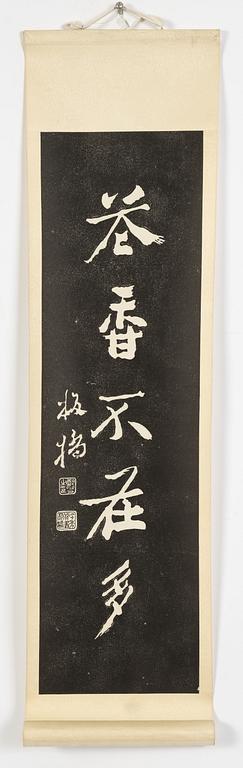 花香不在多
板橋